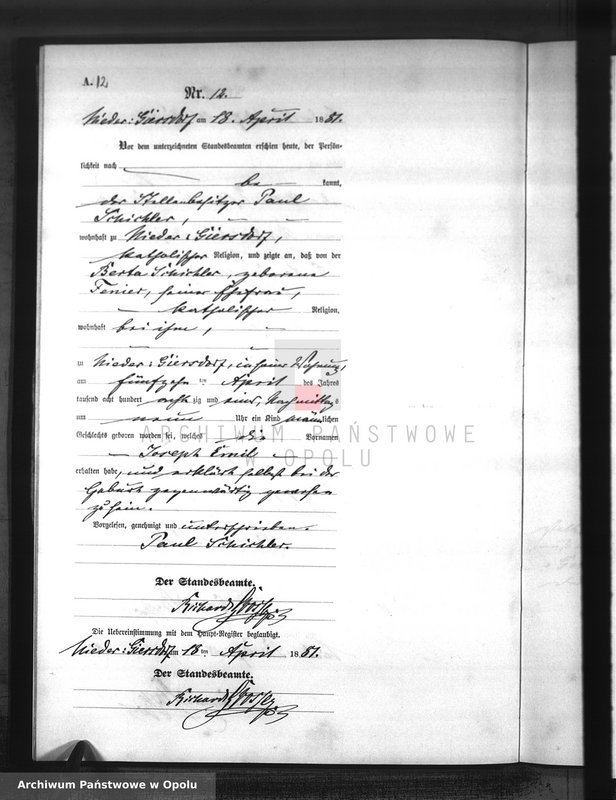 A. 12.
Nr. 12.
Nieder-Giersdorf am 18. April 1881.
Vor dem unterzeichneten Standesbeamten erschien heute, der Persön-
lichkeit nach
be kannt,
der Stellenbesitzer Paul
Schickler,
wohnhaft zu Nieder-Giersdorf,
katholischer Religion, und zeigte an, daß von der
Berta Schickler, geborene
Tenier, seiner Ehefrau,
katholischer Religion,
wohnhaft bei ihm,
zu Nieder-Giersdorf, in seiner Wohnung,
am fünfzehn ten April des Jahres
tausend acht hundert acht zig und eins, Nachmittags
um neun Uhr ein Kind männlichen
Geschlechts geboren worden sei, welches die Vornamen
Joseph Emil
erhalten habe, und erklärt selbst bei der
Geburt gegenwärtig gewesen
zu sein.
Vorgelesen, genehmigt und unterschrieben.
Paul Schickler.
Der Standesbeamte.
Die Uebereinstimmung mit dem Haupt-Register beglaubigt.
Nieder-Giersdorf am 18 ten April 1881.
Der Standesbeamte.
ARCHIWUM PAŃSTWOWE
W OPOLU
Archiwum Państwowe w Opolu